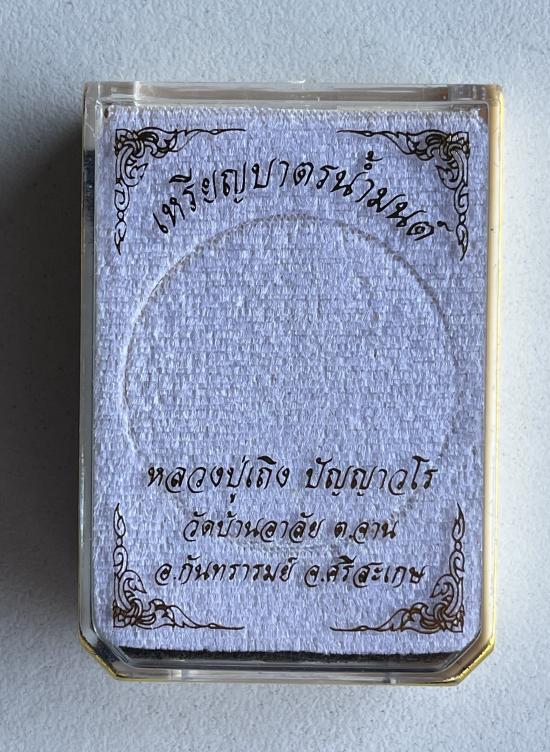 เหรียญบาตรน้ำมนต์
หลวงปู่เถิง ปัญญาวโร
วัดบ้านอาลัย ต.จาน
อ.กันทรารมย์ จ.ศรีสะเกษ